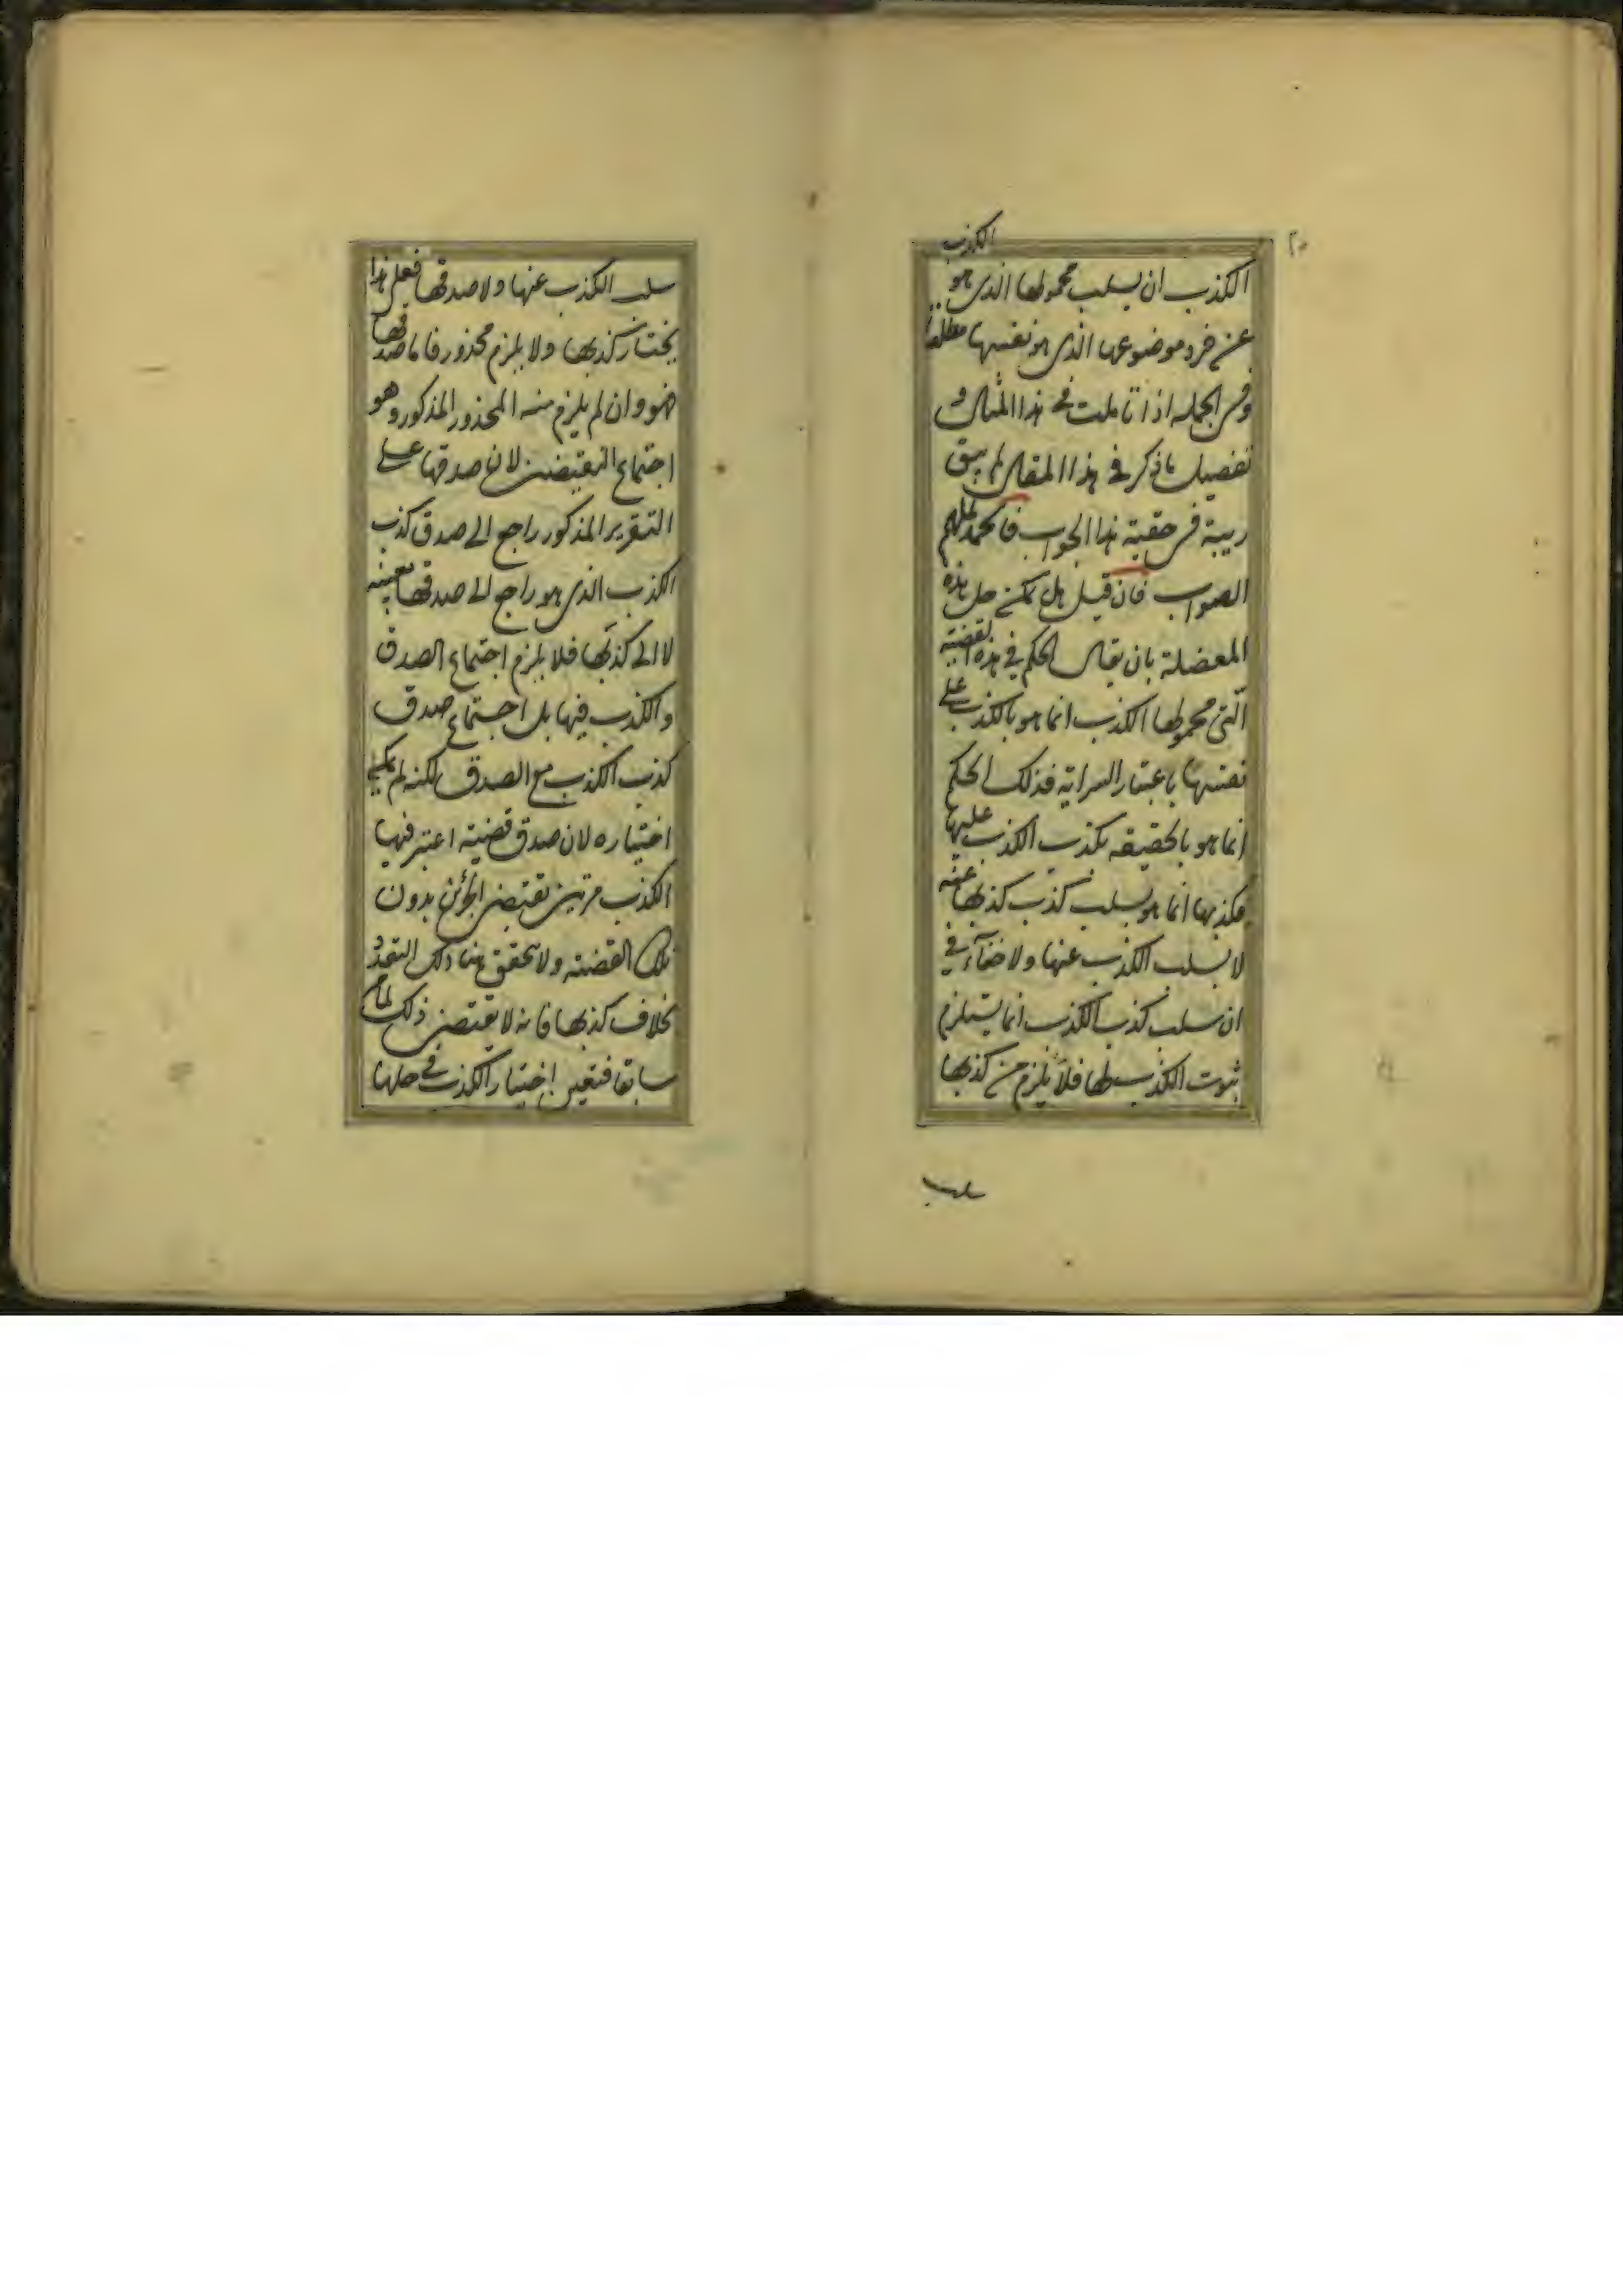 ٢٠
الكذب
الكذب ان يسلب محمولها الذى هو
عن فرد موضوعها الذى هو نفسها مطلقا
وفى الجملة اذا تاملت فى هذا المثال و
تفصيل ما ذكر فى هذا المقال لم يبق
ريبة فى حقية هذا الجواب فالحمد لملهم
الصواب فان قيل هل يمكن حل هذه
المعضلة بان يقال الحكم فى هذه القضية
الّتى محمولها الكذب انما هو بالكذب على
نفسها باعتبار السراية فذلك الحكم
انما هو بالحقيقة بكذب الكذب عليها
فكذبها انما هو بسلب كذب كذبها عنه
لا بسلب الكذب عنها ولا خفآء فى
ان سلب كذب الكذب انما يستلزم
ثبوت الكذب لها فلا يلزم من كذبها
سلب
سلب الكذب عنها ولا صدقها فعلى هذا
يختار كذبها ولا يلزم محذور فاما صدقها
فهو وان لم يلزم منه المحذور المذكور وهو
اجتماع النقيضين لان صدقها على
التقرير المذكور راجع الى صدق كذب
الكذب الذى هو راجع الى صدقها بعينه
لا الى كذبها فلا يلزم اجتماع الصدق
والكذب فيها بل اجتماع صدق
كذب الكذب مع الصدق لكنه لم يمكن
اختياره لان صدق قضية اعتبر فيها
الكذب مرتين يقتضى اخرى بدون
تلك القضية ولا يتحقق هنا ذلك التعدد
بخلاف كذبها فانه لا يقتضى ذلك لما مر
سابقا فتعين اختيار الكذب فى حلها